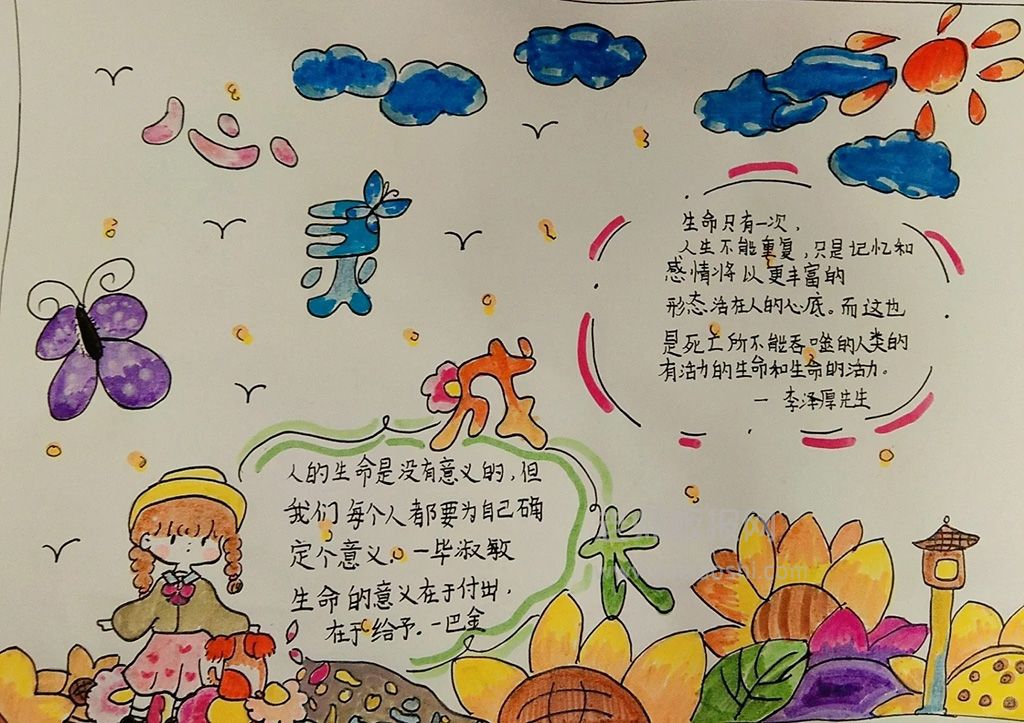 心
灵
成
长
生命只有一次，
人生不能重复，只是记忆和
感情将以更丰富的
形态活在人的心底。而这也
是死亡所不能吞噬的人类的
有活力的生命和生命的活力。
一 李泽厚先生
人的生命是没有意义的，但
我们每个人都要为自己确
定个意义。一毕淑敏
生命的意义在于付出，
在于给予。一巴金